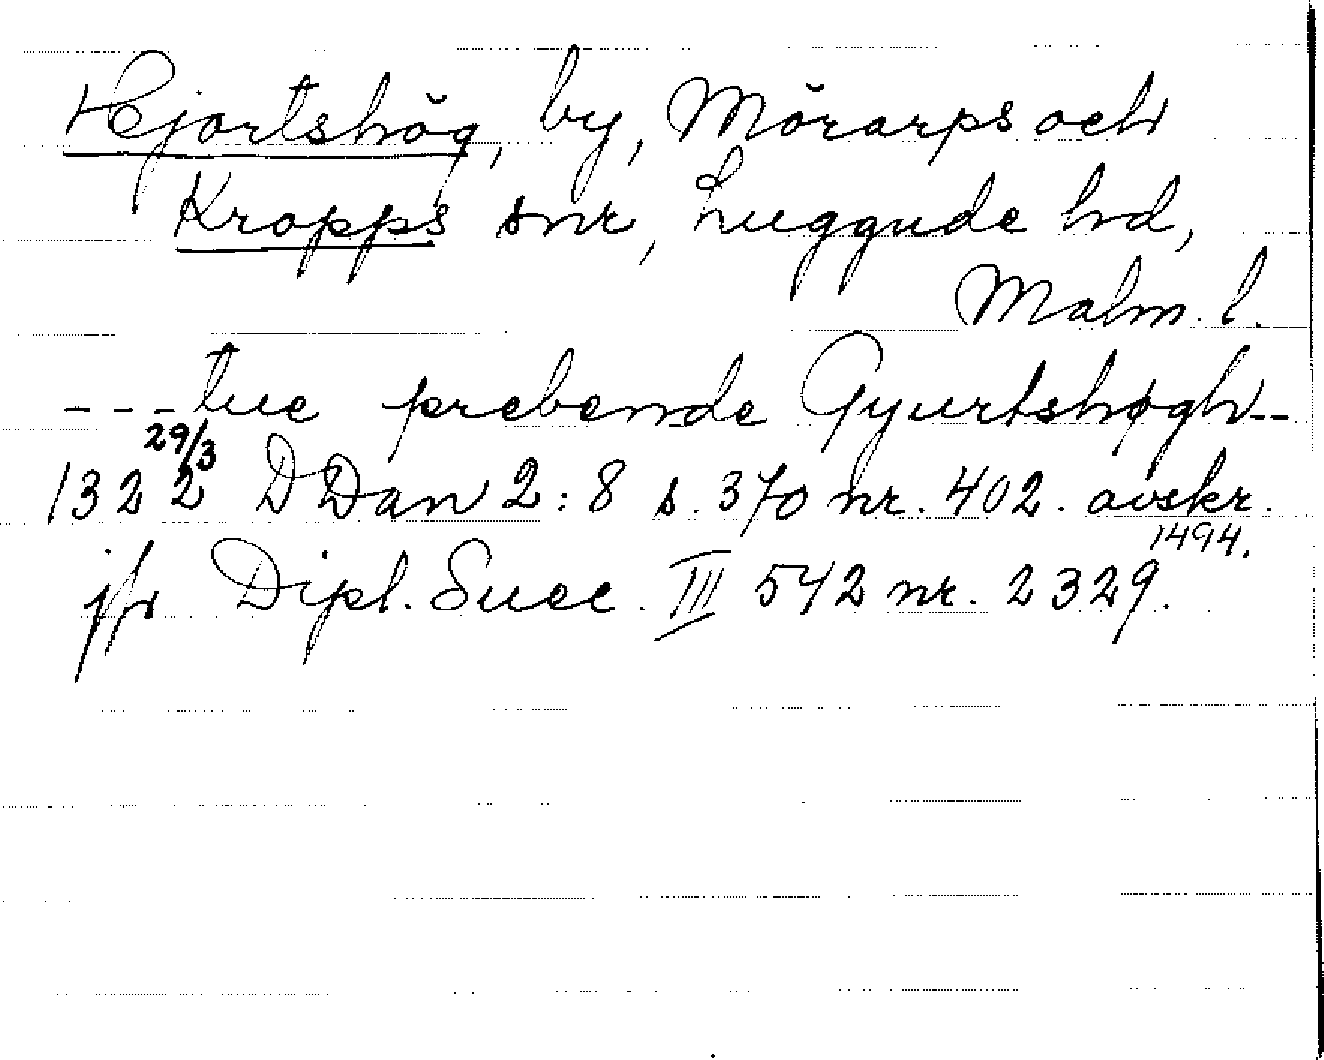 Hjortshög, by, Mörarps och
Kropps snr, Luggude hd,
Malm. l.
- - - tue prebende Gyurtshøgh - -
1322 29/3 DDan 2:8 s. 370 nr. 402. avskr. 1494.
jfr Dipl. Suec. III 542 nr. 2329.